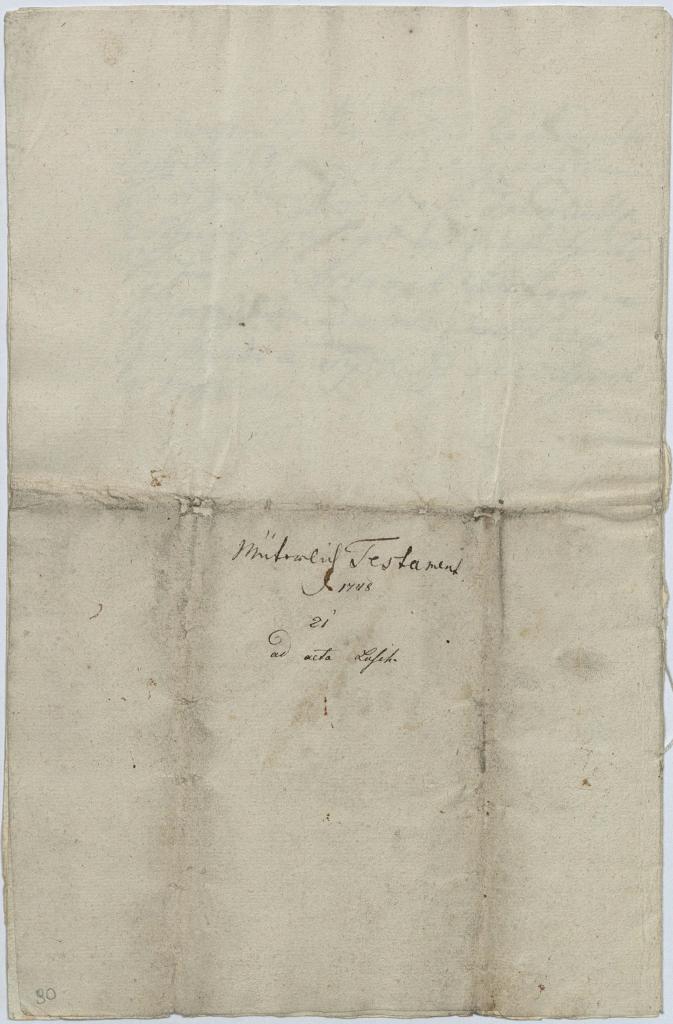 Müterlich Testament
1748
21
ad acta
30